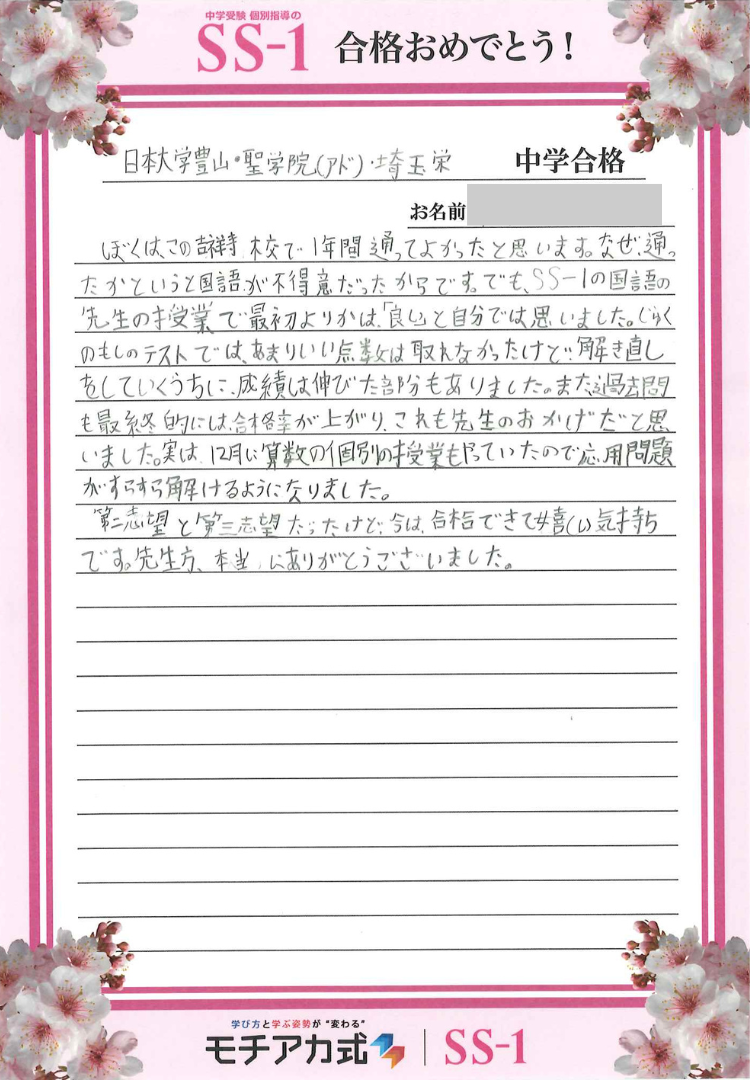 中学受験 個別指導の
SS-1 合格おめでとう!
日本大学豊山・聖学院(アド)・埼玉栄 中学合格
お名前
ぼくは、この吉祥寺校で1年間通ってよかったと思います。なぜ、通っ
たかというと国語が不得意だったからです。でも、SS-1の国語の
先生の授業で最初よりかは、「良い」と自分では思いました。しらく
のもしのテストでは、あまりいい点数は取れなかったけど、解き直し
をしていくうちに、成績は伸びた部分もありました。また、過去問
も最終的には、合格率が上がり、これも先生のおかげだと思
いました。実は、12月に算数の個別の授業もやっていたので応用問題
がすらすら解けるようになりました。
第二志望と第三志望だったけど、今は、合格できて嬉しい気持ち
です。先生方、本当にありがとうございました。
学び方と学ぶ姿勢が“変わる”
モチアカ式 SS-1